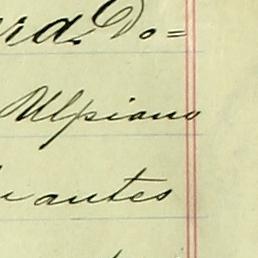 ra Do=
Ulpiano
antes